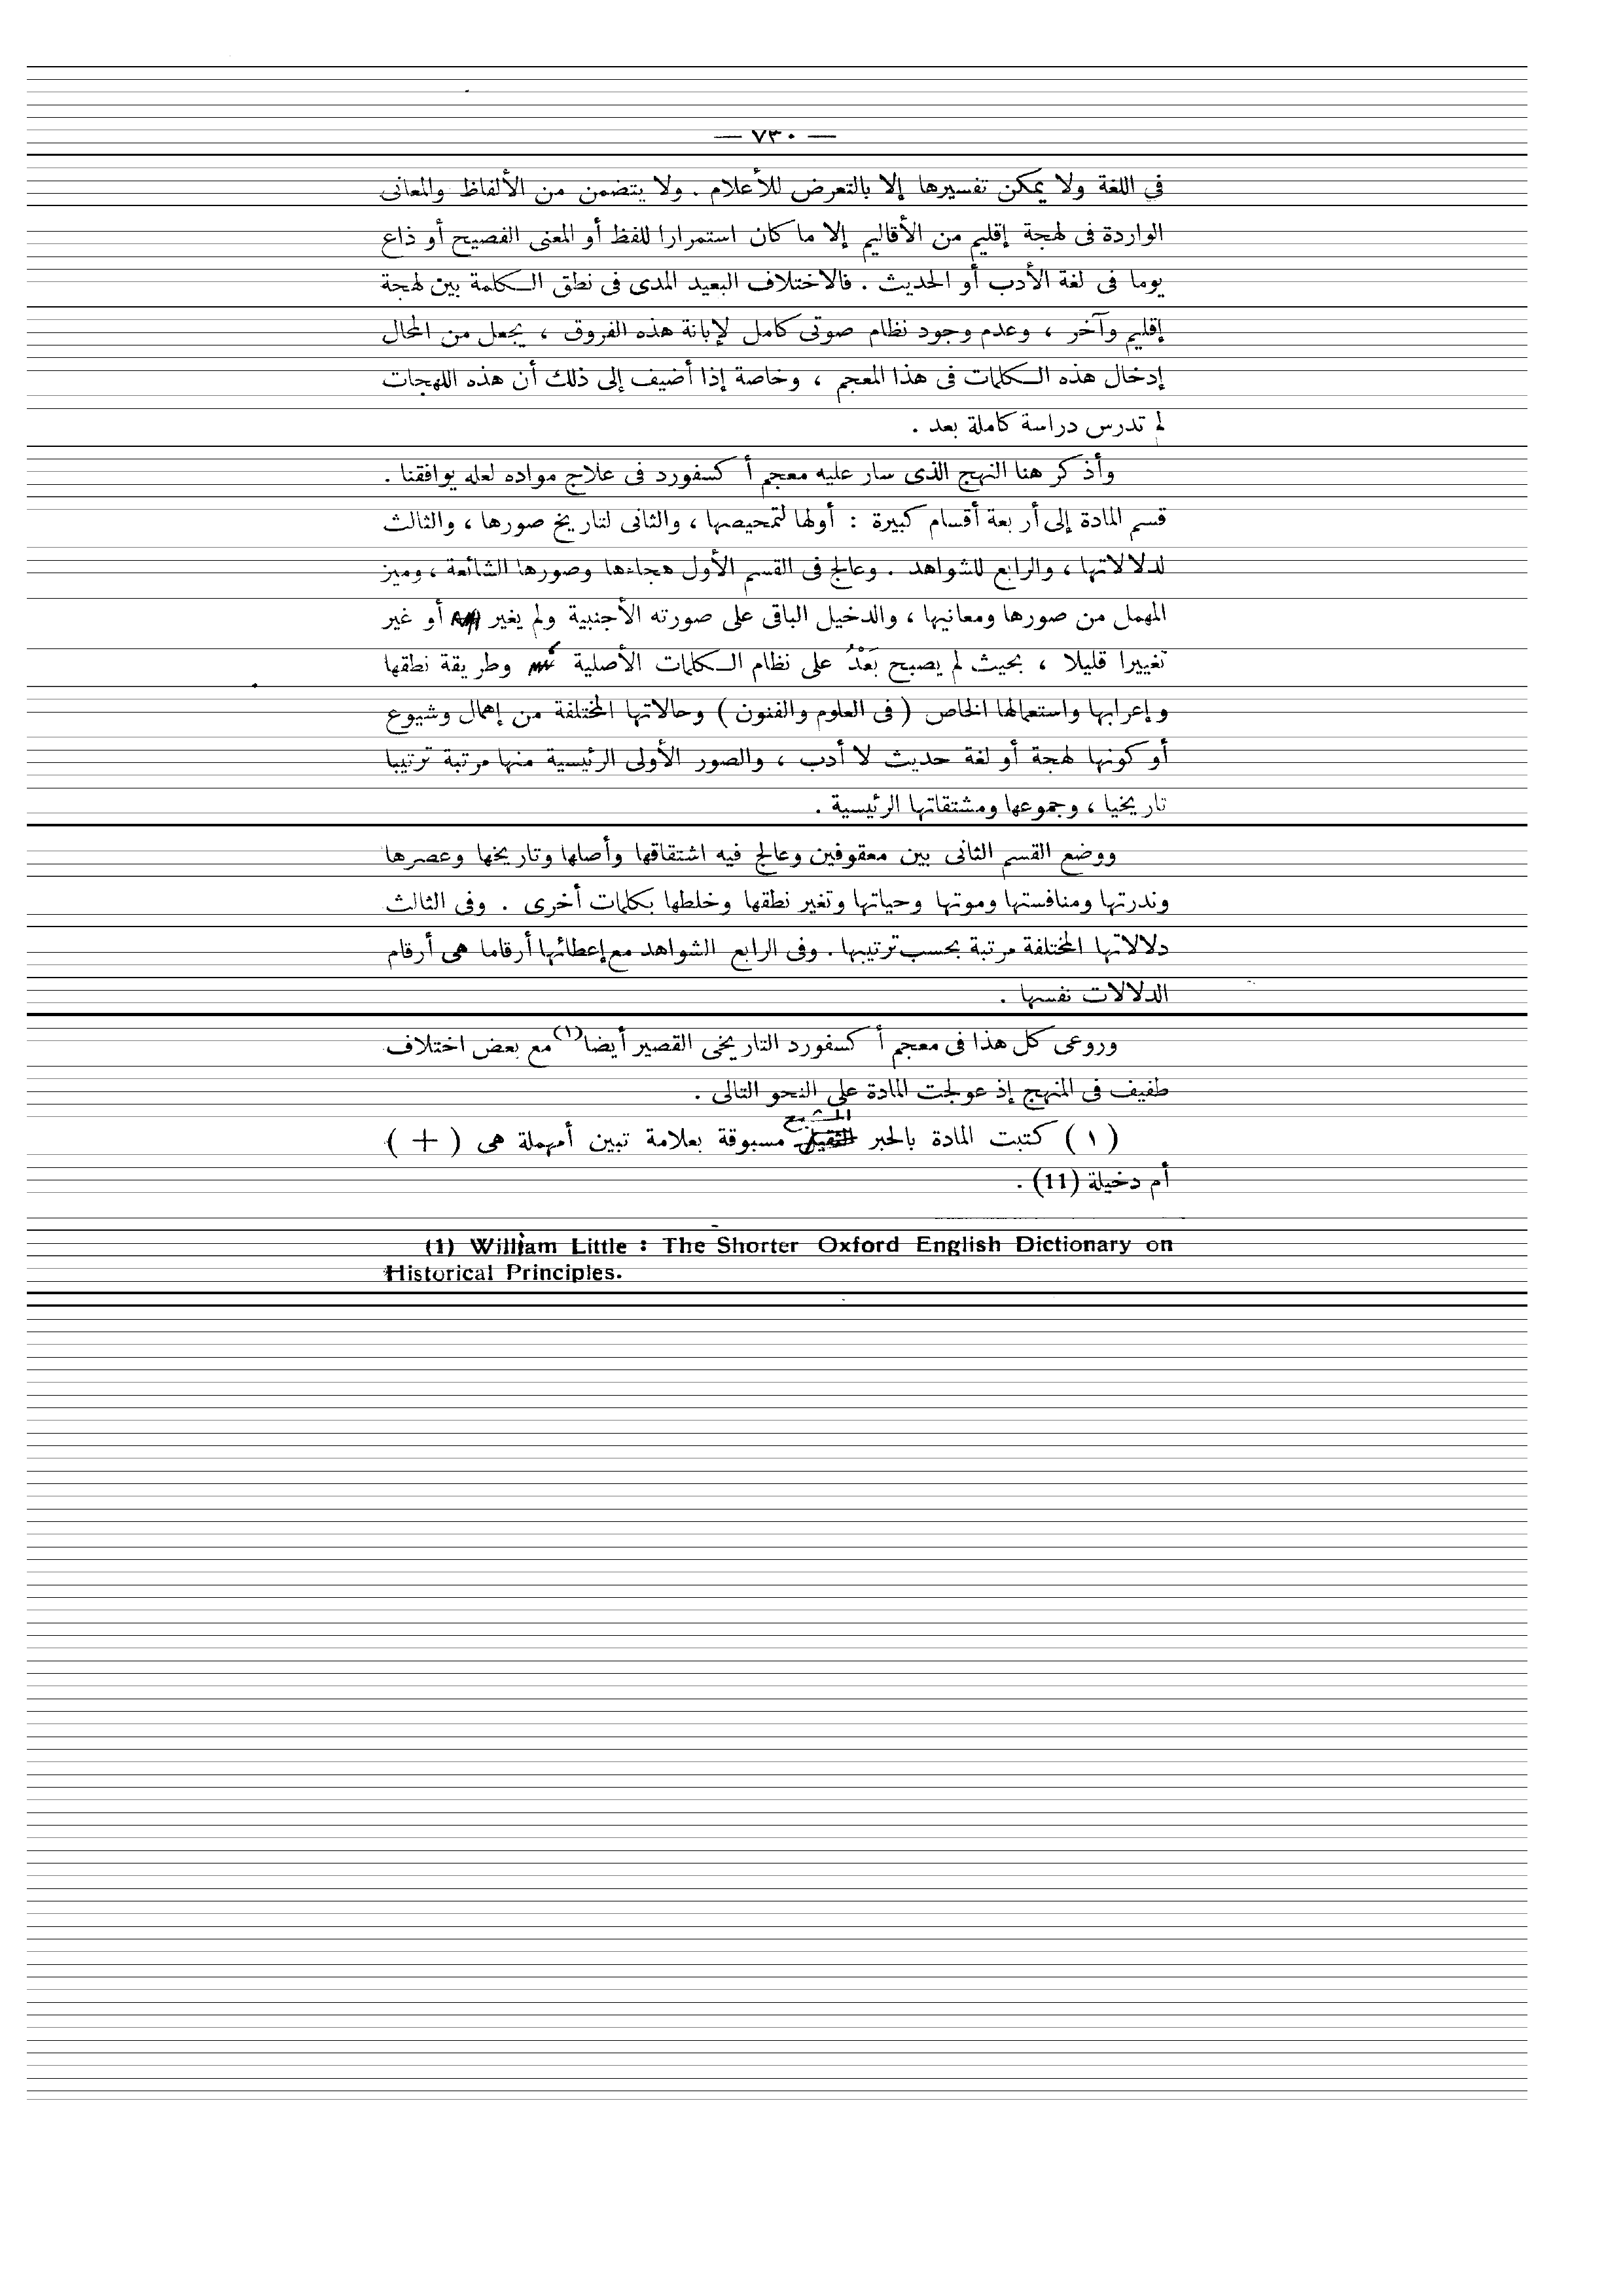 — ٧٣٠ —
في اللغة ولا يمكن تفسيرها إلا بالتعرض للأعلام . ولا يتضمن من الألفاظ والمعانى
الواردة فى لهجة إقليم من الأقاليم إلا ما كان استمرارا للفظ أو المعنى الفصيح أو ذاع
يوما فى لغة الأدب أو الحديث . فالاختلاف البعيد المدى فى نطق الكلمة بين لهجة
إقليم وآخر ، وعدم وجود نظام صوتى كامل لإبانة هذه الفروق ، يجعل من المحال
إدخال هذه الكلمات فى هذا المعجم ، وخاصة إذا أضيف إلى ذلك أن هذه اللهجات
لم تدرس دراسة كاملة بعد .
وأذكر هنا النهج الذى سار عليه معجم أكسفورد فى علاج مواده لعله يوافقنا .
قسم المادة إلى أربعة أقسام كبيرة : أولها لتمحيصها ، والثانى لتاريخ صورها ، والثالث
لدلالاتها ، والرابع للشواهد . وعالج فى القسم الأول هجاءها وصورها الشائعة ، وميز
المهمل من صورها ومعانيها ، والدخيل الباقى على صورته الأجنبية ولم يغير أو غير
تغييرا قليلا ، بحيث لم يصبح بَعْدُ على نظام الكلمات الأصلية وطريقة نطقها
وإعرابها واستعمالها الخاص ( فى العلوم والفنون ) وحالاتها المختلفة من إهمال وشيوع
أو كونها لهجة أو لغة حديث لا أدب ، والصور الأولى الرئيسية منها مرتبة ترتيبا
تاريخيا ، وجموعها ومشتقاتها الرئيسية .
ووضع القسم الثانى بين معقوفين وعالج فيه اشتقاقها وأصلها وتاريخها وعصرها
وندرتها ومنافستها وموتها وحياتها وتغير نطقها وخلطها بكلمات أخرى . وفى الثالث
دلالاتها المختلفة مرتبة بحسب ترتيبها . وفى الرابع الشواهد مع إعطائها أرقاما هى أرقام
الدلالات نفسها .
وروعى كل هذا فى معجم أكسفورد التاريخى القصير أيضا(١) مع بعض اختلاف
طفيف فى المنهج إذ عولجت المادة على النحو التالى .
( ١ ) كتبت المادة بالحبر المشبع مسبوقة بعلامة تبين أمهملة هى ( + )
أم دخيلة (11) .
(1) William Little : The Shorter Oxford English Dictionary on
Historical Principles.